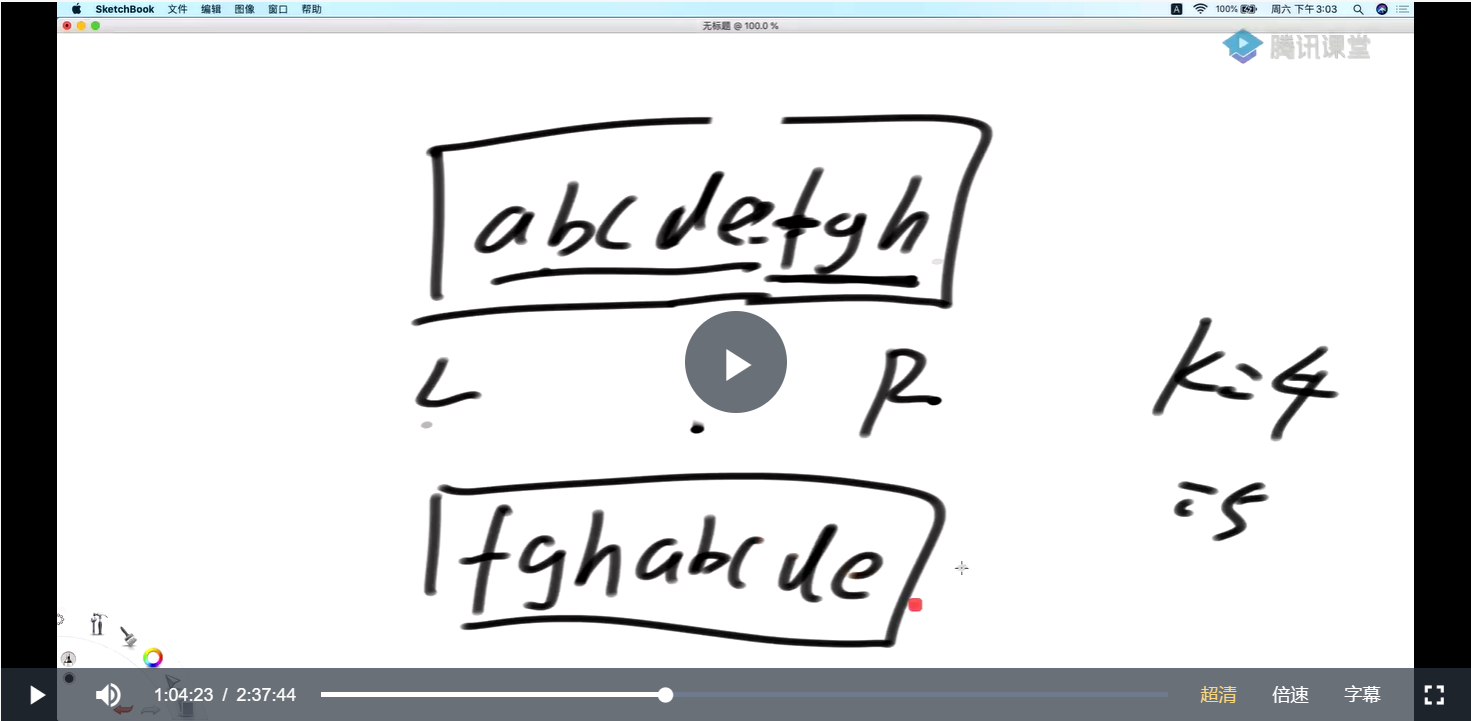 SketchBook 文件 编辑 图像 窗口 帮助 A 100% 周六 下午3:03
无标题 @ 100.0 %
腾讯课堂
abcdefgh
L R
k=4
=5
fghabcde
1:04:23 / 2:37:44 超清 倍速 字幕